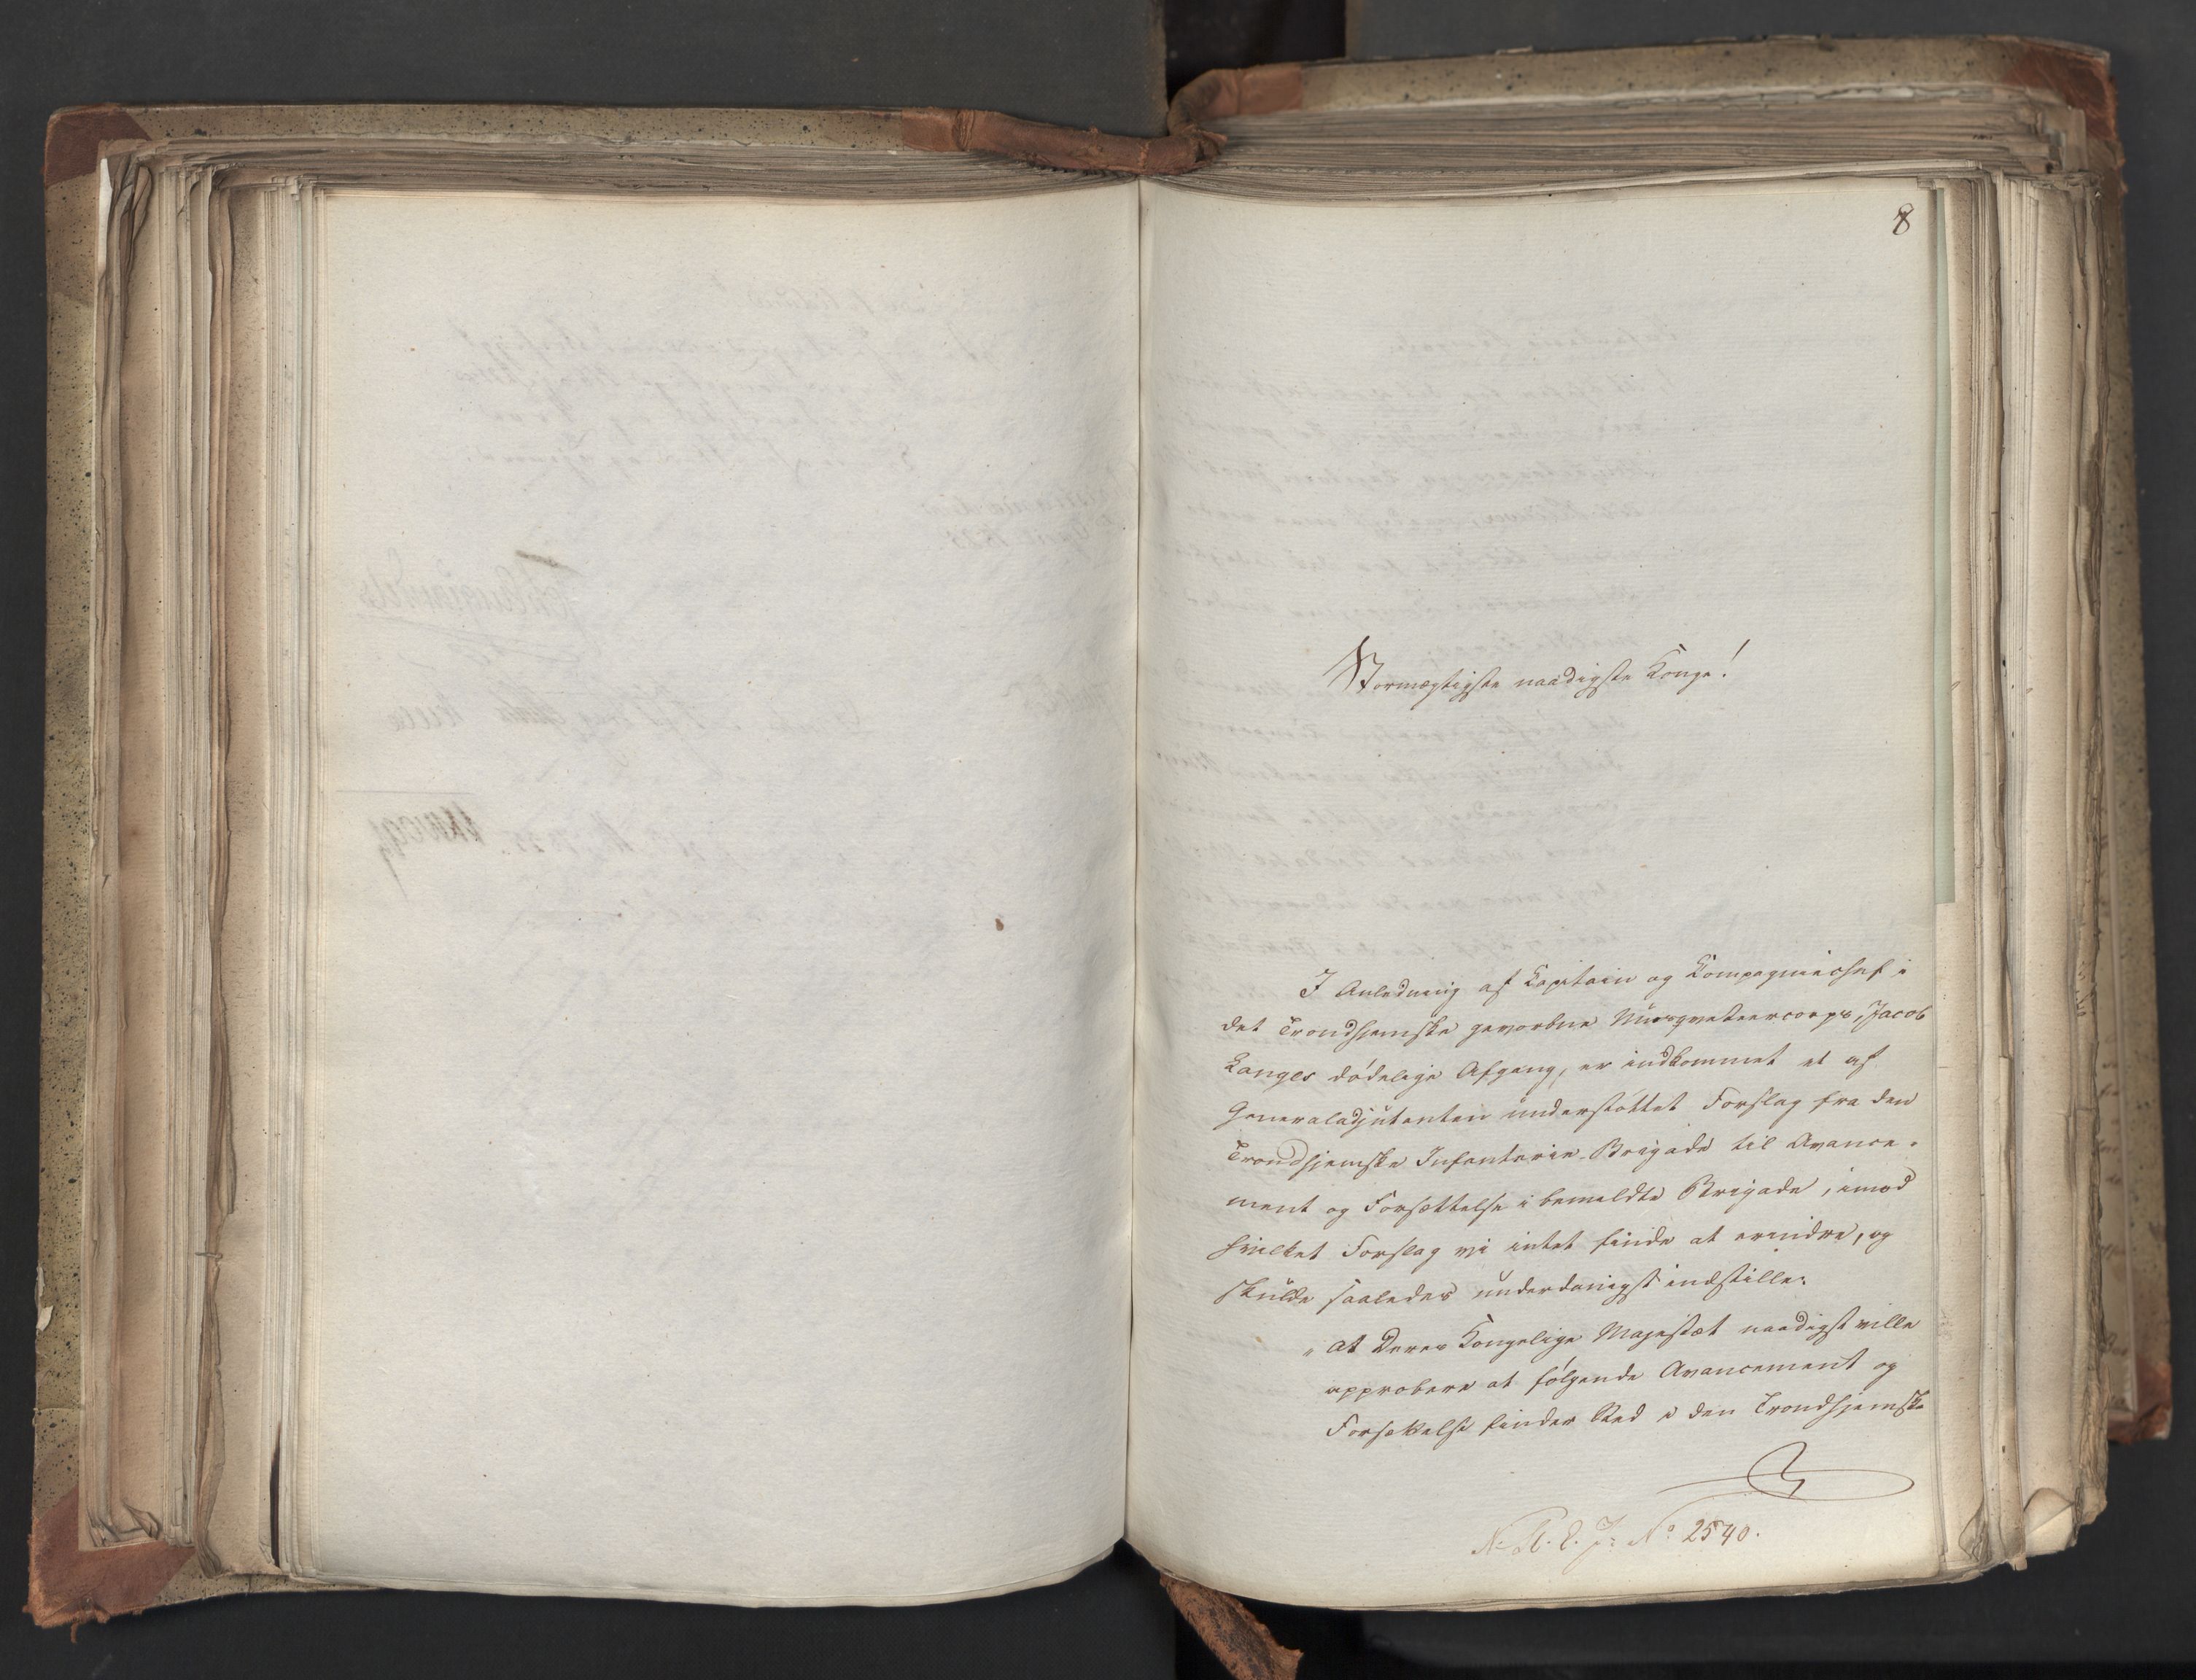 8
Stormægtigste naadigste Konge!
I Anledning af Capitain og Kompagniechef i
det Trondhjemske gevorbne Musqveteercorps, Jacob
Langes dødelige Afgang, er indkommet et af
Generaladjutanten understøttet Forslag fra den
Trondhjemske Infanterie-Brigade til Avance-
ment og Forsættelse i bemeldte Brigade, imod
hvilket Forslag vi intet finde at erindre, og
skulde saaledes underdanigst indstille:
„at Deres Kongelige Majestæt naadigst ville
approbere at følgende Avancement og
Forsættelse finder Sted i den Trondhjemske
No 2540.